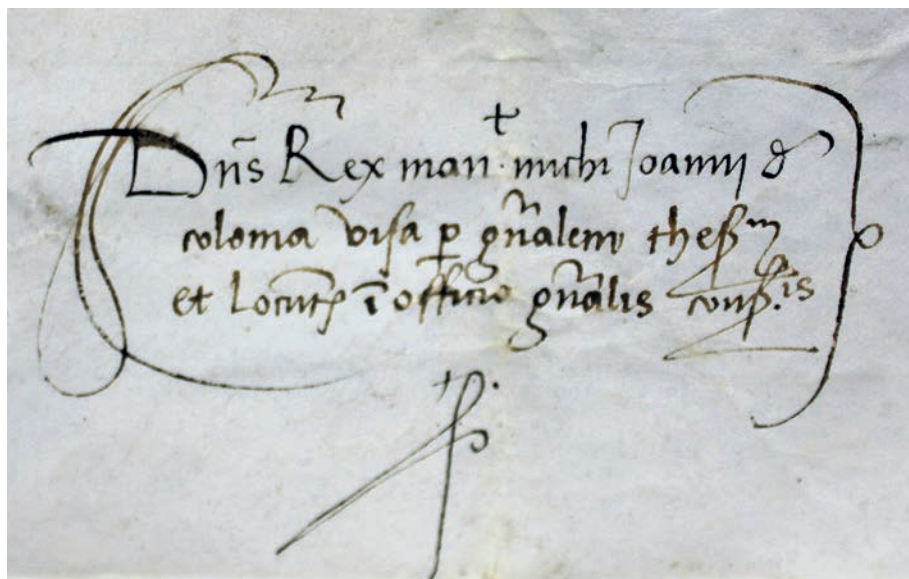 ✝
Dns Rex man. michi Joanni d
coloma visa p gnalem thes.m
et Locumt. i officio gnalis cons.is
p.